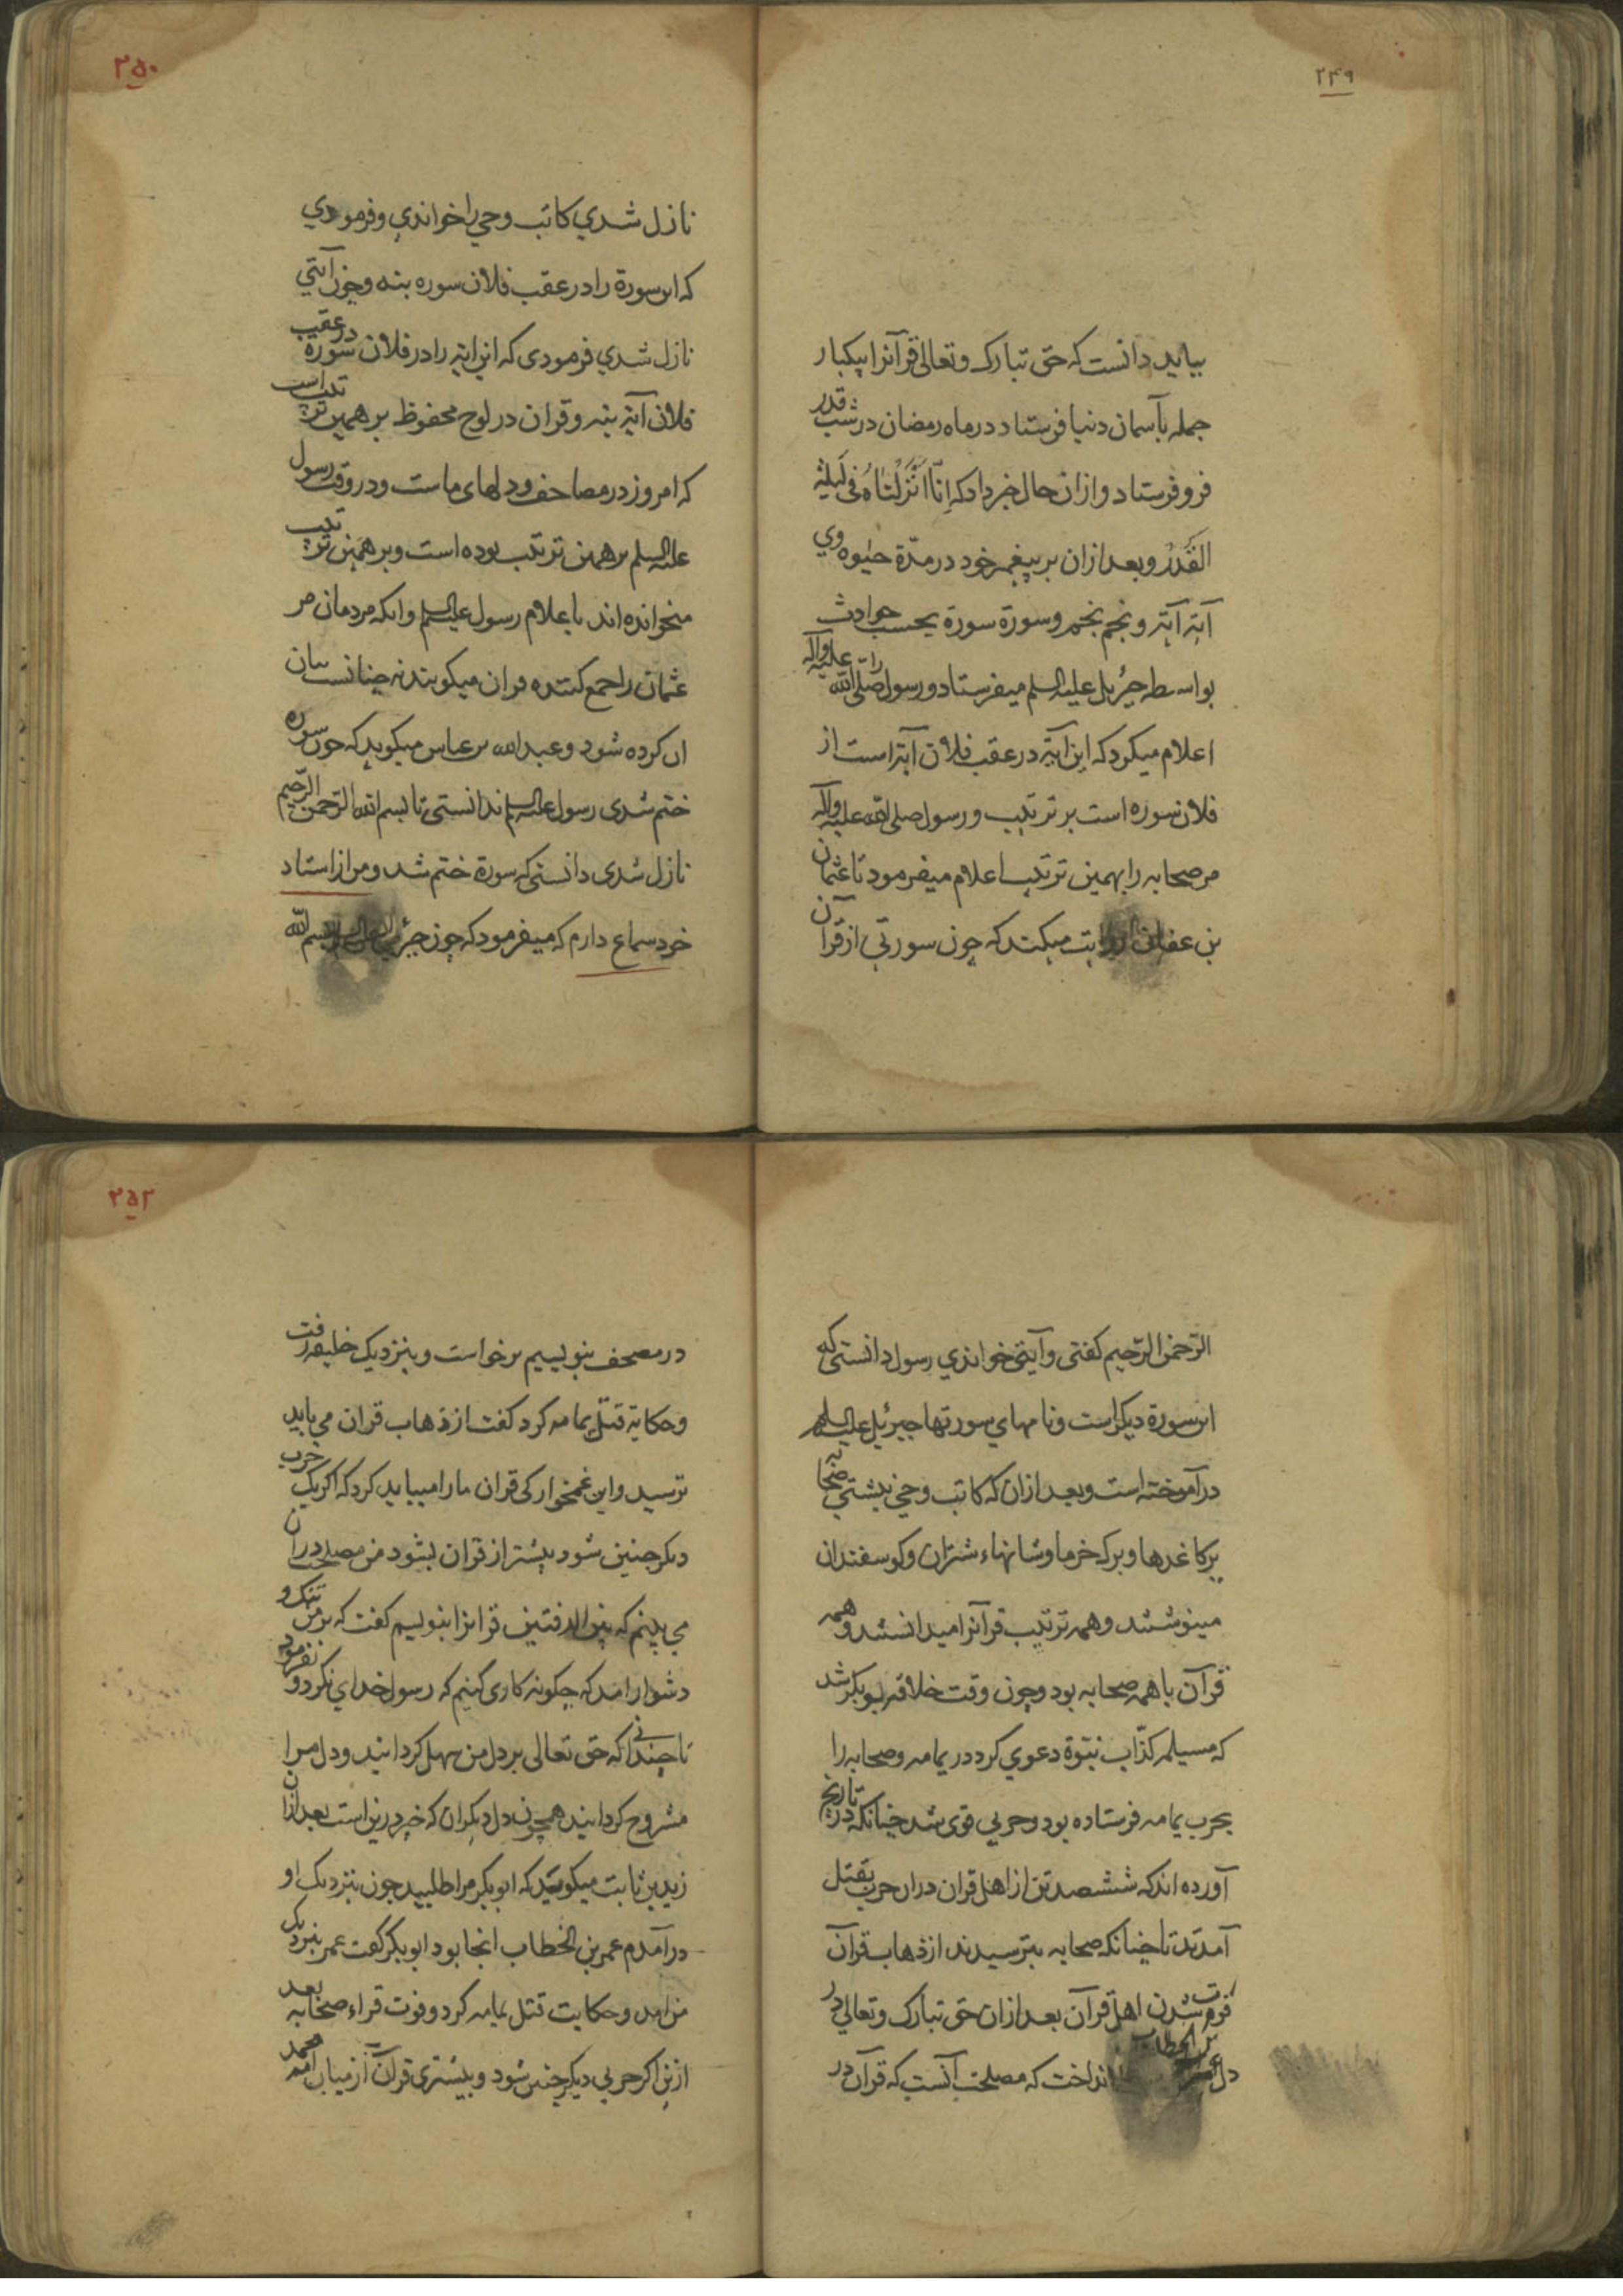 ۲۴۹
بباید دانست که حق تبارک وتعالی قرآنرا بیکبار
جمله بآسمان دنیا فرستاد در ماه رمضان در شب قدر
فرو فرستاد وازان حال خبر داد که اِنّا اَنْزَلْناهُ فی لَیلَةِ
القَدْرِ وبعد ازان بر پیغمبر خود در مدّة حیوه وي
آیة آیة ونجم نجم وسورة سورة بحسب حوادث
بواسطه جبرئیل علیه السلم میفرستاد ورسول را صلی الله علیه وآله
اعلام میکرد که این آیة در عقب فلان آیة است از
فلان سوره است بر ترتیب ورسول صلی الله علیه وآله
مر صحابه را بهمین ترتیب اعلام میفرمود تا عثمان
بن عفان روایت میکند که چون سورتی از قرآن
۲۵۰
نازل شدي کاتب وحي را خواندي وفرمودي
که این سورة را در عقب فلان سوره بنه وچون آیتي
نازل شدي فرمودی که این ایة را در فلان سوره در عقب
فلان آیة بنه وقران در لوح محفوظ بر همین ترتیب است
که امروز در مصاحف ودلهای ماست ودر وقت رسول
علیه السلم بر همین ترتیب بوده است وبر همین ترتیب
میخوانده اند باعلام رسول علیه السلم وانکه مردمان مر
عثمان را جمع کننده قران میکویند نه چنانست بیان
ان کرده شود وعبد الله بن عباس میکوید که چون سوره
ختم شدی رسول علیه السلم ندانستی تا بسم الله الرّحمن الرّحیم
نازل شدی دانستی که سورة ختم شد ومن از استاد
خود سماع دارم که میفرمود که چون جبرئیل بسم الله
الرّحمن الرّحیم کفتی وآیتی خواندي رسول دانستی که
این سورة دیکر است ونامهاي سورتها جبرئیل علیه السلم
در آموخته است وبعد ازان که کاتب وحي نبشتي صحابه
بر کاغدها وبرک خرما وشانهاء شتران وکوسفندان
مینوشتند وهمه ترتیب قرآنرا میدانستند وهمه
قرآن با همه صحابه بود وچون وقت خلافه بوبکر شد
که مسیلمه کذّاب نبوّة دعوي کرد در یمامه وصحابه را
بحرب یمامه فرستاده بود وحربي قوی شد چنانکه در تاریخ
آورده اند که ششصد تن از اهل قران دران حرب بقتل
آمدند تا چنانکه صحابه بترسیدند از ذهاب قرآن
فوت شدن اهل قرآن بعد ازان حق تبارک وتعالي در
دل عمر بن الخطاب انداخت که مصلحت آنست که قرآن در
۲۵۲
در مصحف بنویسیم برخواست وبنزدیک خلیفه رفت
وحکایة قتل یمامه کرد کفت از ذهاب قران مي باید
ترسید واین غمخوارکی قران ما را میباید کرد که اکر یک حرب
دیکر چنین شود بیشتر از قران بشود من مصلحت دران
می بینم که بین الدفتین قرانرا بنویسیم کفت که بر من تنک و
دشوار امد که چکونه کاری کنیم که رسول خدای نکرد و نفرمود
تا چندانی که حق تعالی بر دل من سهل کردانید ودل مرا
مشروح کردانید همچون دل دیکران که خیر درین است بعد ازان
زید بن ثابت میکوید که ابوبکر مرا طلبید چون بنزدیک او
در آمدم عمر بن الخطاب انجا بود ابوبکر کفت عمر بنزدیک
من امد وحکایت قتل یمامه کرد وفوت قراء صحابه بعد
ازین اکر حربی دیکر چنین شود وبیشتری قرآن از میان امه محمد